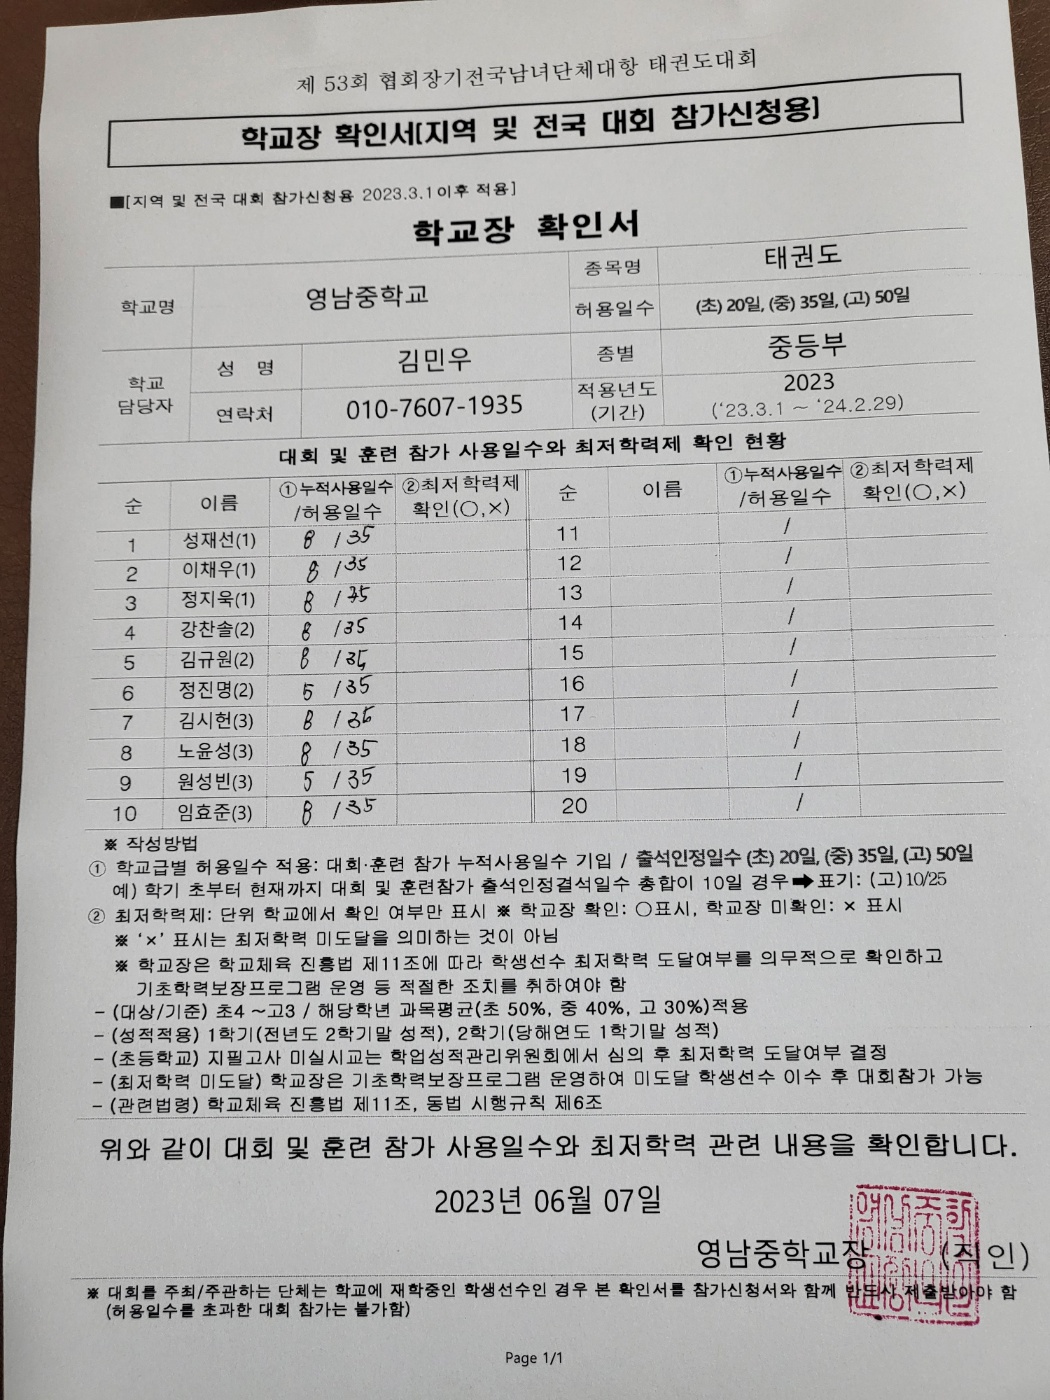 제 53회 협회장기전국남녀단체대항 태권도대회
학교장 확인서[지역 및 전국 대회 참가신청용]
■[지역 및 전국 대회 참가신청용 2023.3.1이후 적용]
학교장 확인서
학교명 영남중학교 종목명 태권도
허용일수 (초) 20일, (중) 35일, (고) 50일
학교 담당자 성 명 김민우 종별 중등부
연락처 010-7607-1935 적용년도 (기간) 2023 (‘23.3.1 ~ ‘24.2.29)
대회 및 훈련 참가 사용일수와 최저학력제 확인 현황
순 이름 ①누적사용일수 /허용일수 ②최저학력제 확인(○,×) 순 이름 ①누적사용일수 /허용일수 ②최저학력제 확인(○,×)
1 성재선(1) 8 /35 11 /
2 이채우(1) 8 /35 12 /
3 정지욱(1) 8 /35 13 /
4 강찬솔(2) 8 /35 14 /
5 김규원(2) 8 /35 15 /
6 정진명(2) 5 /35 16 /
7 김시헌(3) 8 /35 17 /
8 노윤성(3) 8 /35 18 /
9 원성빈(3) 5 /35 19 /
10 임효준(3) 8 /35 20 /
※ 작성방법
① 학교급별 허용일수 적용: 대회·훈련 참가 누적사용일수 기입 / 출석인정일수 (초) 20일, (중) 35일, (고) 50일
예) 학기 초부터 현재까지 대회 및 훈련참가 출석인정결석일수 총합이 10일 경우➡표기: (고)10/25
② 최저학력제: 단위 학교에서 확인 여부만 표시 ※ 학교장 확인: ○표시, 학교장 미확인: × 표시
※ ‘×’ 표시는 최저학력 미도달을 의미하는 것이 아님
※ 학교장은 학교체육 진흥법 제11조에 따라 학생선수 최저학력 도달여부를 의무적으로 확인하고
기초학력보장프로그램 운영 등 적절한 조치를 취하여야 함
- (대상/기준) 초4 ~고3 / 해당학년 과목평균(초 50%, 중 40%, 고 30%)적용
- (성적적용) 1학기(전년도 2학기말 성적), 2학기(당해연도 1학기말 성적)
- (초등학교) 지필고사 미실시교는 학업성적관리위원회에서 심의 후 최저학력 도달여부 결정
- (최저학력 미도달) 학교장은 기초학력보장프로그램 운영하여 미도달 학생선수 이수 후 대회참가 가능
- (관련법령) 학교체육 진흥법 제11조, 동법 시행규칙 제6조
위와 같이 대회 및 훈련 참가 사용일수와 최저학력 관련 내용을 확인합니다.
2023년 06월 07일
영남중학교장 (직인)
※ 대회를 주최/주관하는 단체는 학교에 재학중인 학생선수인 경우 본 확인서를 참가신청서와 함께 반드시 제출받아야 함
(허용일수를 초과한 대회 참가는 불가함)
Page 1/1